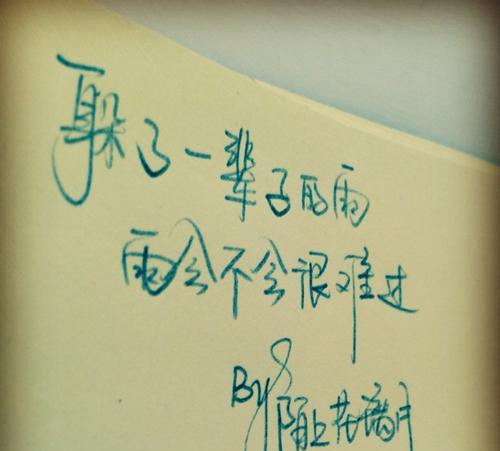 躲了一辈子的雨
雨会不会很难过
By 陌上花离月